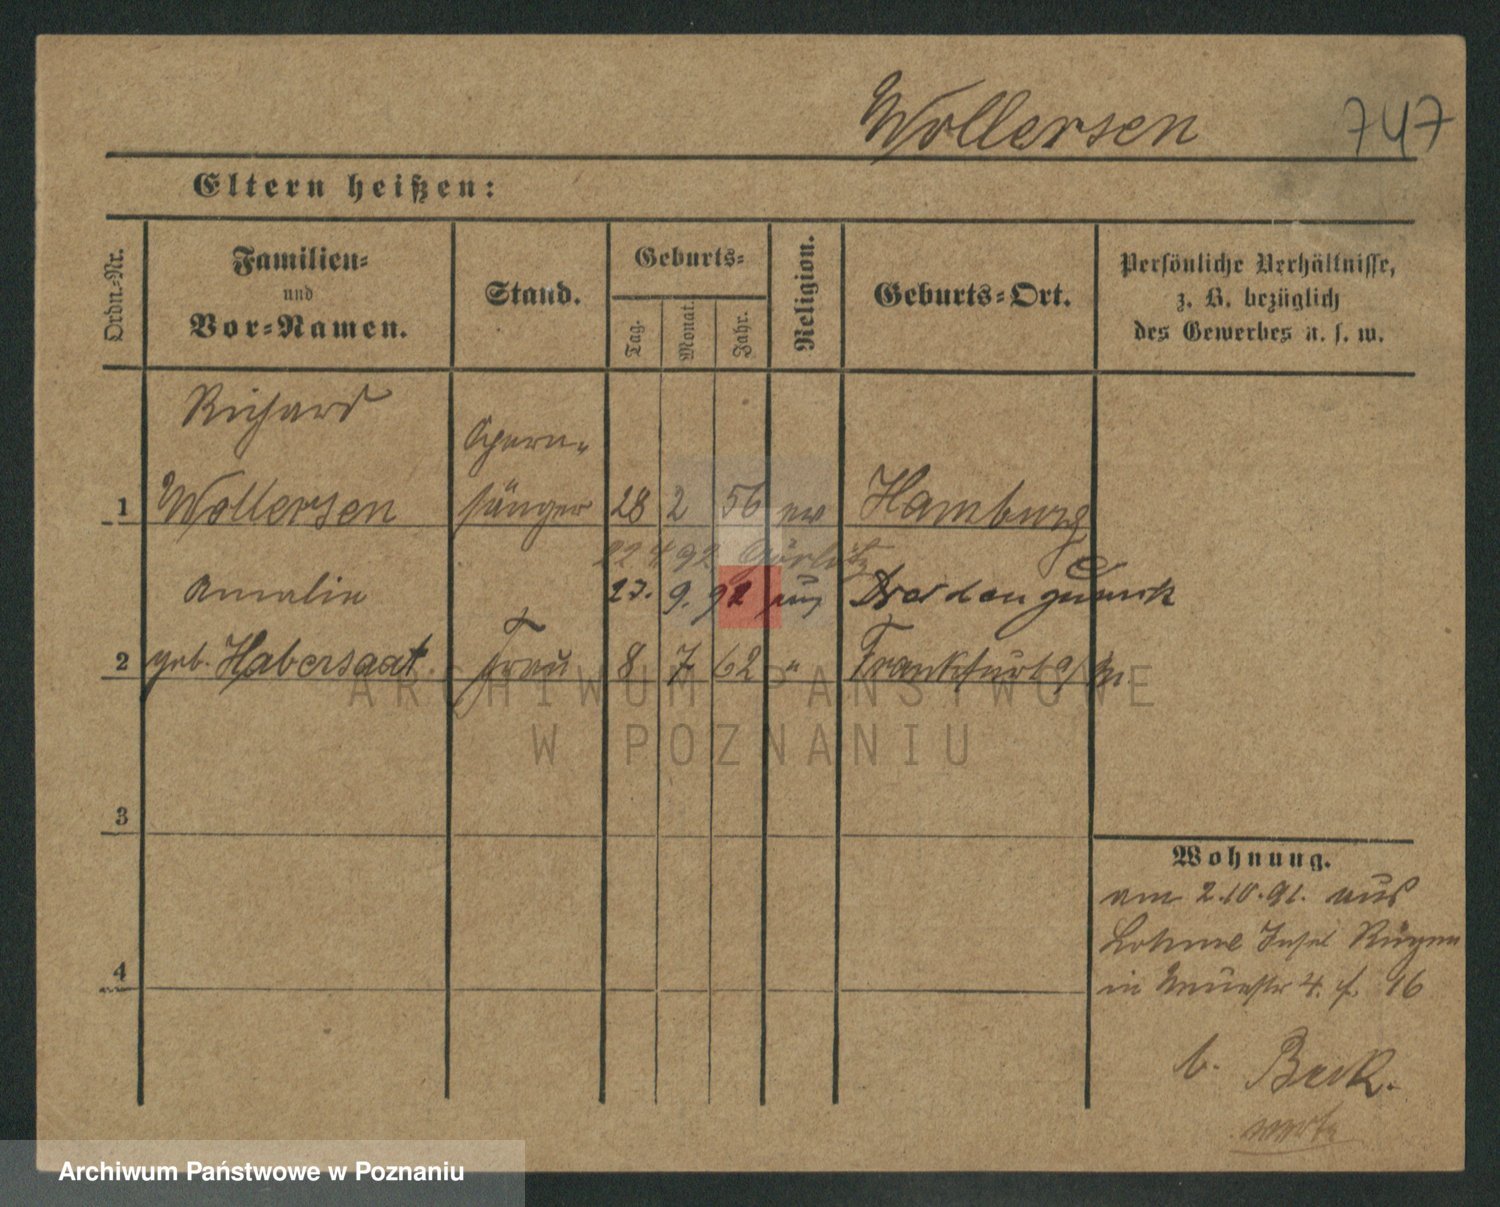 Wollersen 747
Eltern heißen:
Ordn.-Nr.
Familien-
und
Vor-Namen.
Stand.
Geburts-
Tag.
Monat.
Jahr.
Religion.
Geburts-Ort.
Persönliche Verhältnisse,
z. B. bezüglich
des Gewerbes u. s. w.
Richard
Opern-
1 Wollersen sänger 28 2 56 ev Hamburg
22 4 92 Görlitz
Amalie 27. 9. 92 Dresden zurück
2 geb. Habersaat Frau 8 7 62 " Frankfurt a/M.
3
4
Wohnung.
am 2.10.91. aus
Lohme Insel Rügen
in 4. 16
b. Beck.
ARCHIWUM PAŃSTWOWE
W POZNANIU
Archiwum Państwowe w Poznaniu